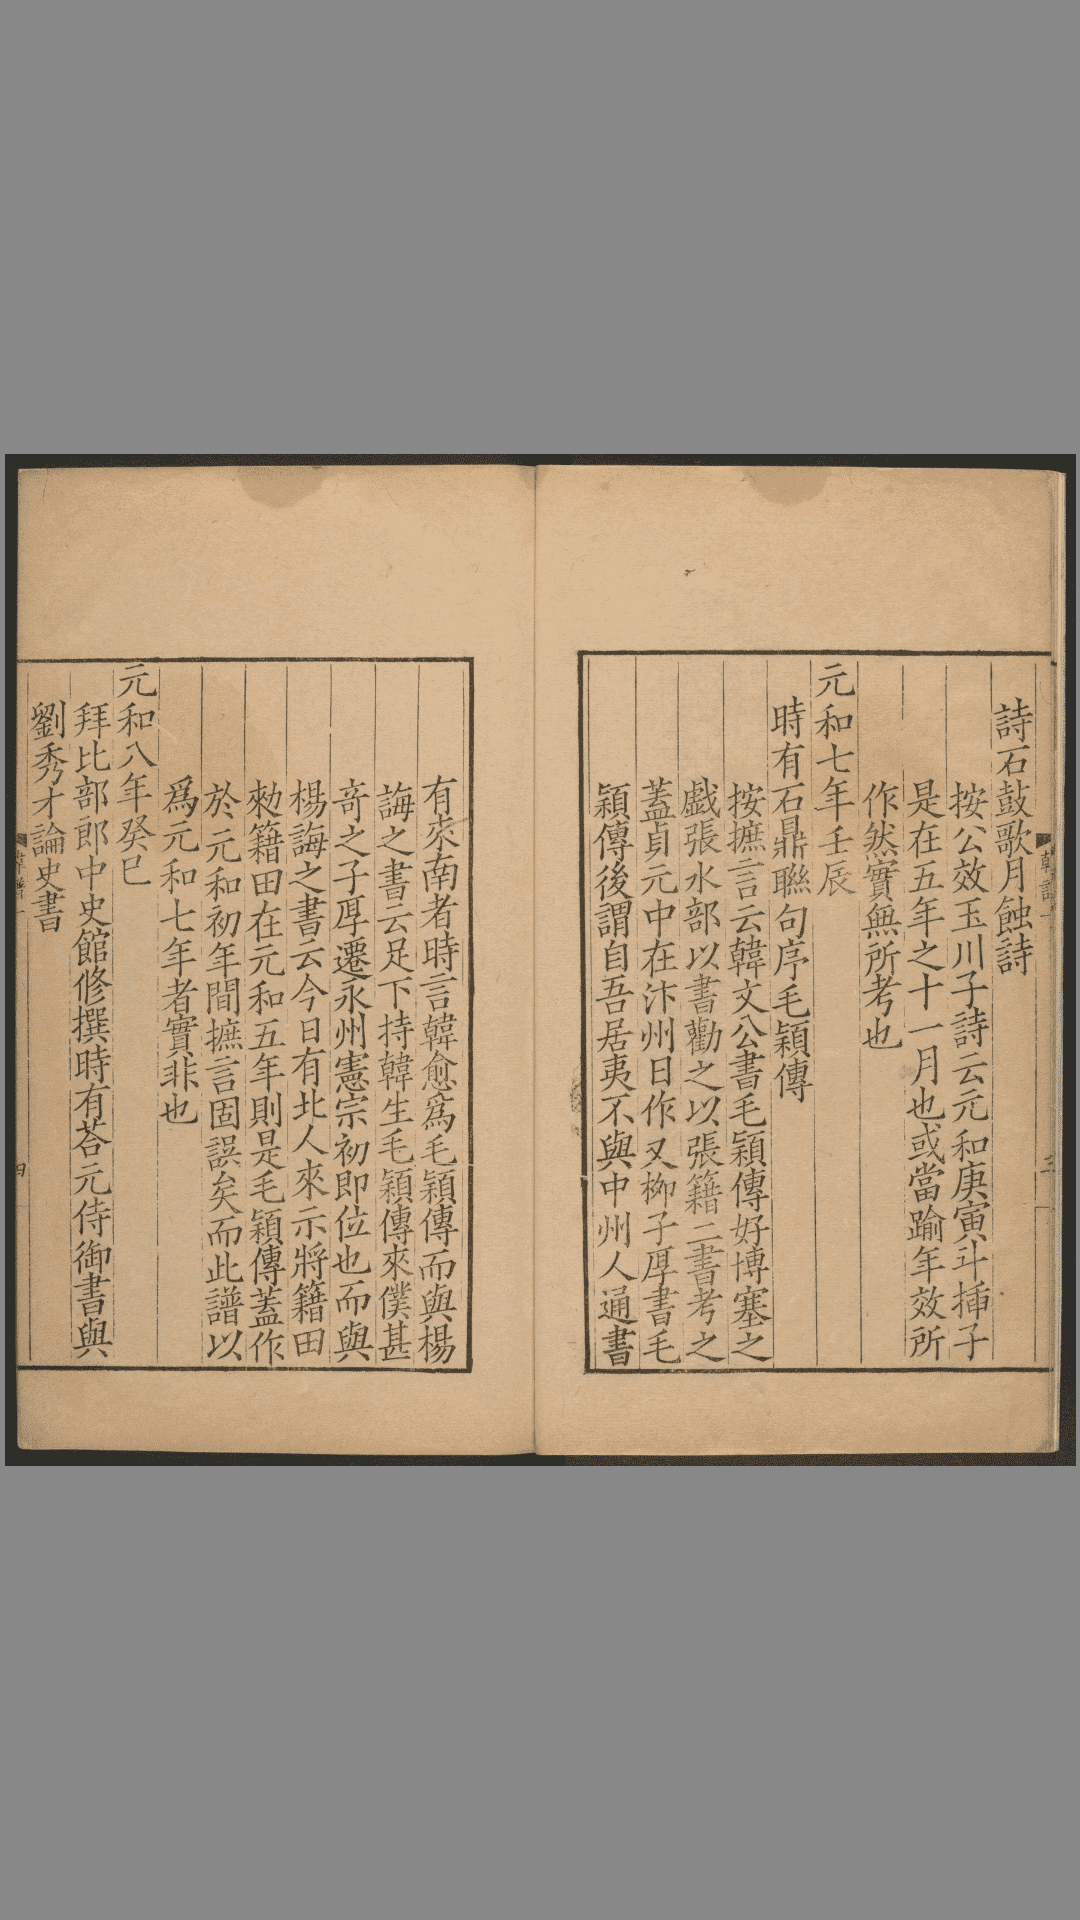 詩石鼓歌月蝕詩
按公效玉川子詩云元和庚寅斗挿子
是在五年之十一月也或當踰年效所
作然實無所考也
元和七年壬辰
時有石鼎聮句序毛穎傳
按摭言云韓文公書毛穎傳好博塞之
戯張水部以書勸之以張籍二書考之
蓋貞元中在汴州日作又栁子厚書毛
穎傳後謂自吾居夷不與中州人通書
有來南者時言韓愈爲毛穎傳而與楊
誨之書云足下持韓生毛穎傳來僕甚
竒之子厚遷永州憲宗初即位也而與
楊誨之書云今日有北人來示將籍田
勑籍田在元和五年則是毛穎傳蓋作
於元和初年間摭言固誤矣而此譜以
爲元和七年者實非也
元和八年癸巳
拜比部郎中史館修撰時有荅元侍御書與
劉秀才論史書
四